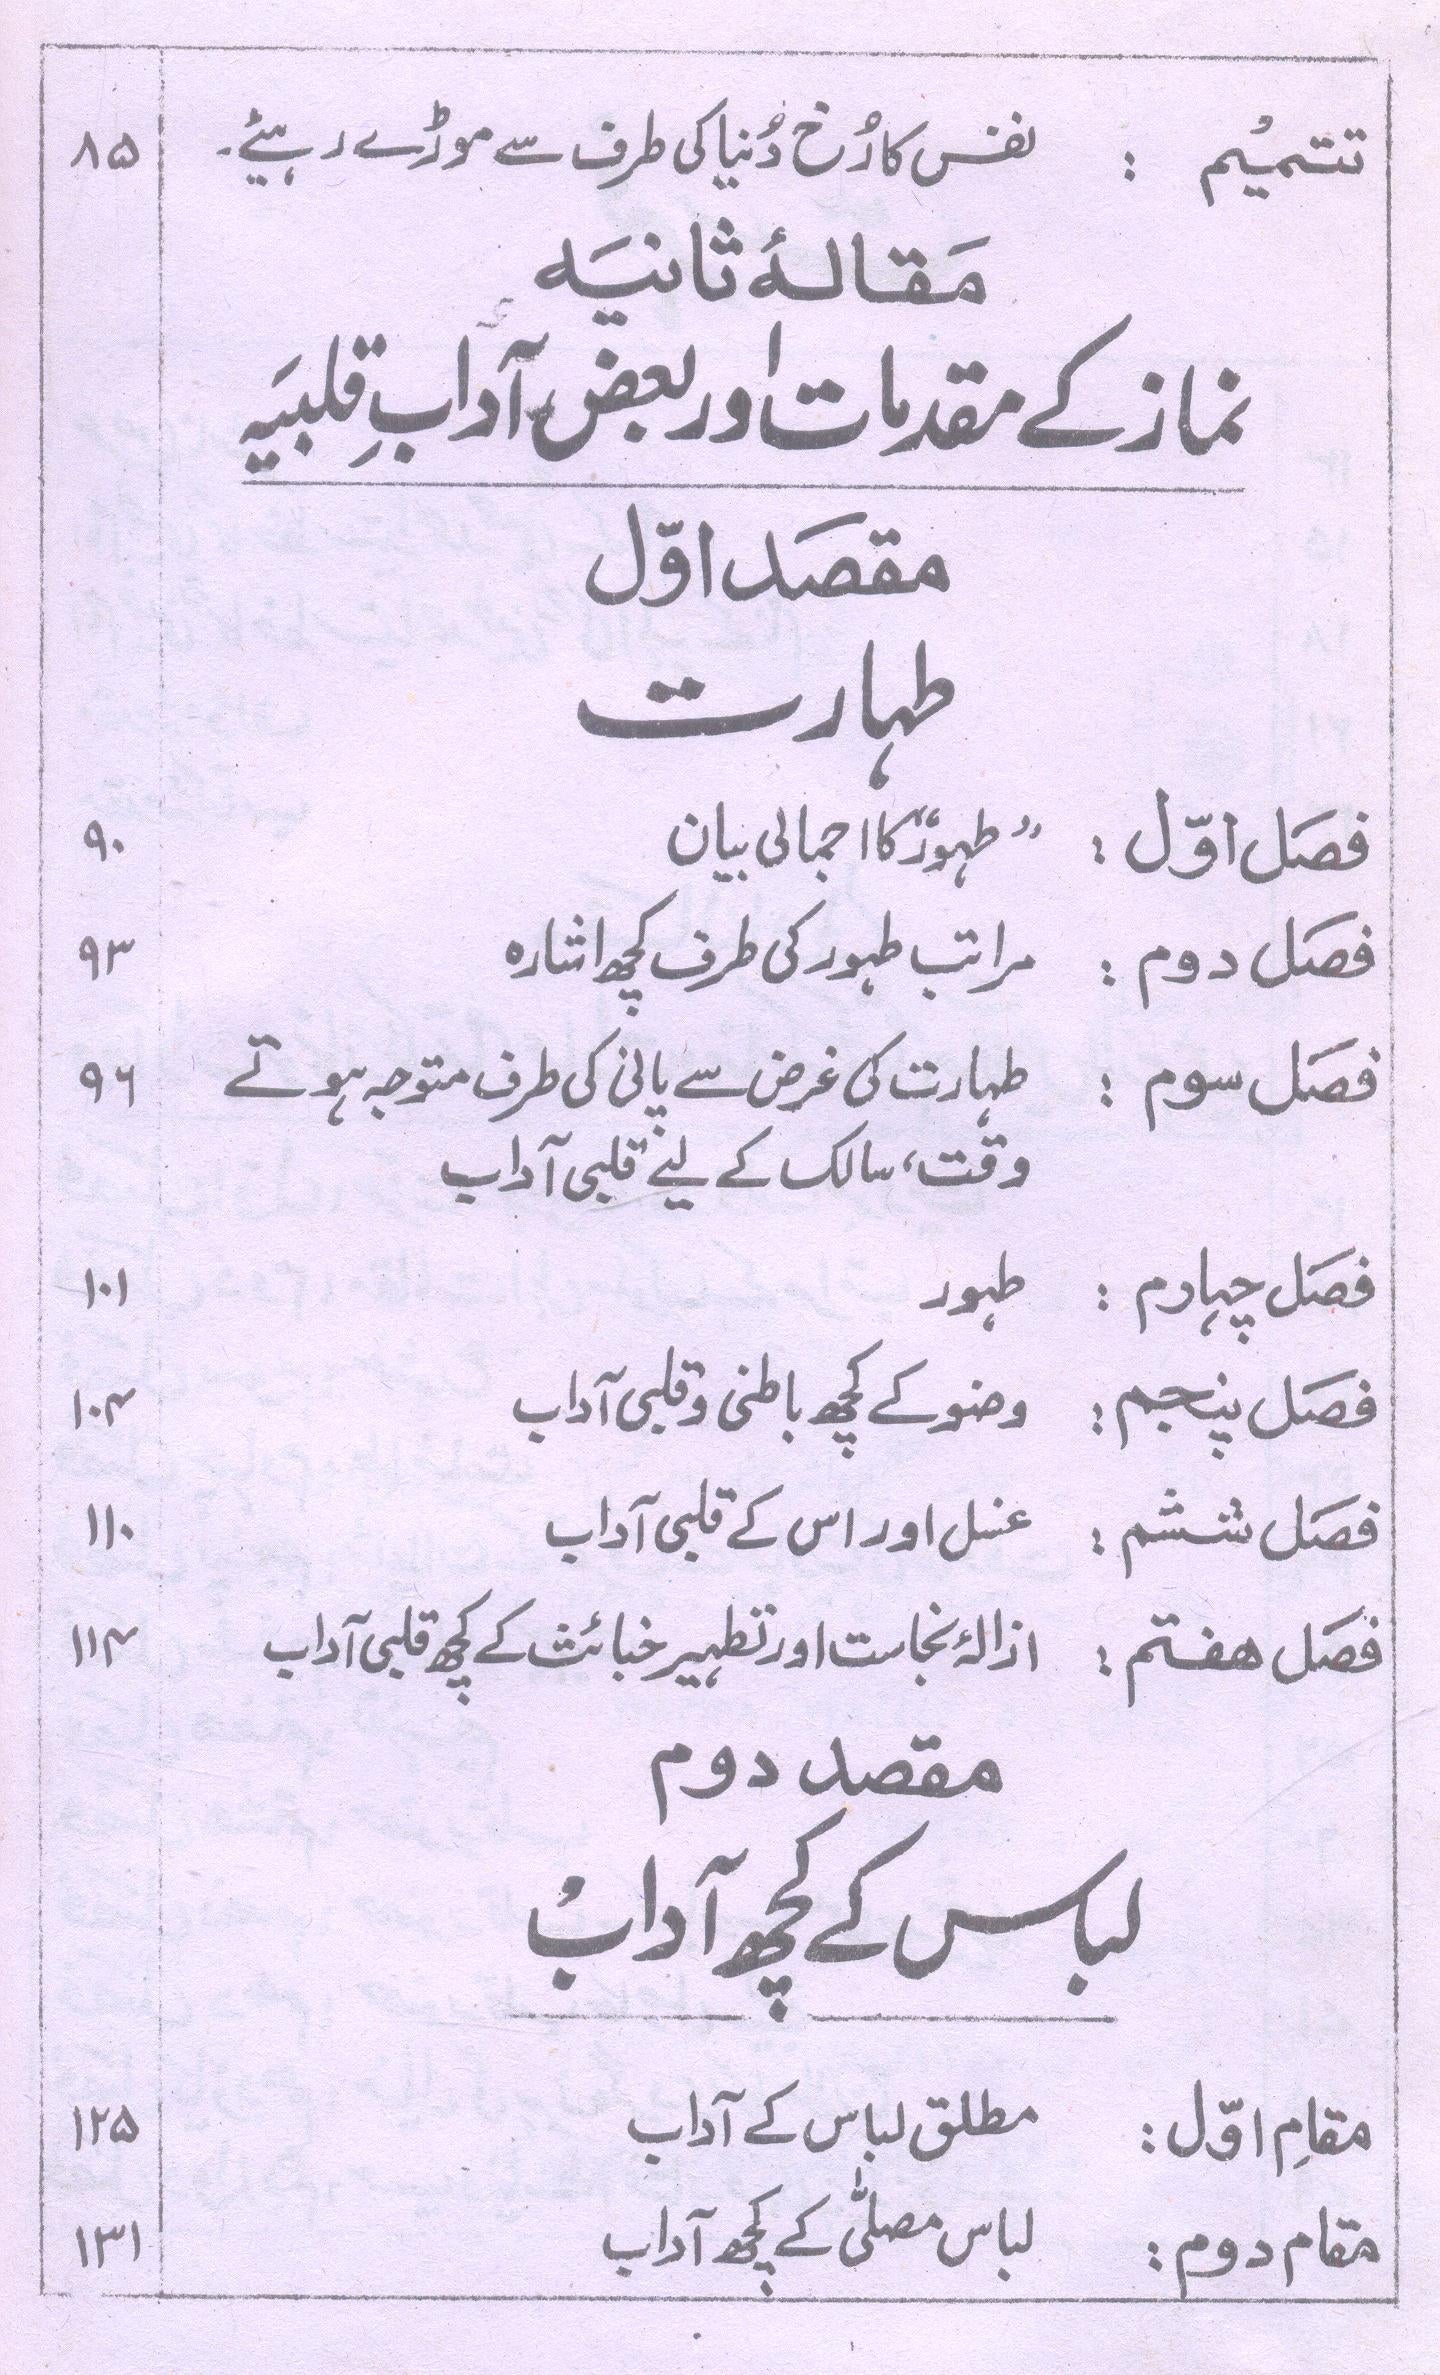 تتمیُم : نفس کا رُخ دُنیا کی طرف سے موڑے رہیئے۔ ۸۵
مَقالۂ ثانیَہ
نماز کے مقدمات اور بعض آدابِ قلبیَہ
مقصَد اوّل
طہارت
فصَل اوّل : ”طہور“ کا اجمالی بیان ۹۰
فصَل دوم : مراتب طہور کی طرف کچھ اشارہ ۹۳
فصَل سوم : طہارت کی غرض سے پانی کی طرف متوجہ ہوتے ۹۶
وقت، سالک کے لیئے قلبی آداب
فصَل چہارم : طہور ۱۰۱
فصَل پنجم : وضو کے کچھ باطنی و قلبی آداب ۱۰۴
فصَل ششم : غسل اور اس کے قلبی آداب ۱۱۰
فصَل ھفتم : ازالۂ نجاست اور تطہیر خبائث کے کچھ قلبی آداب ۱۱۴
مقصد دوم
لباس کے کچھ آدابْ
مقامِ اوّل : مطلق لباس کے آداب ۱۲۵
مقام دوم : لباس مصلّٰی کے کچھ آداب ۱۳۱